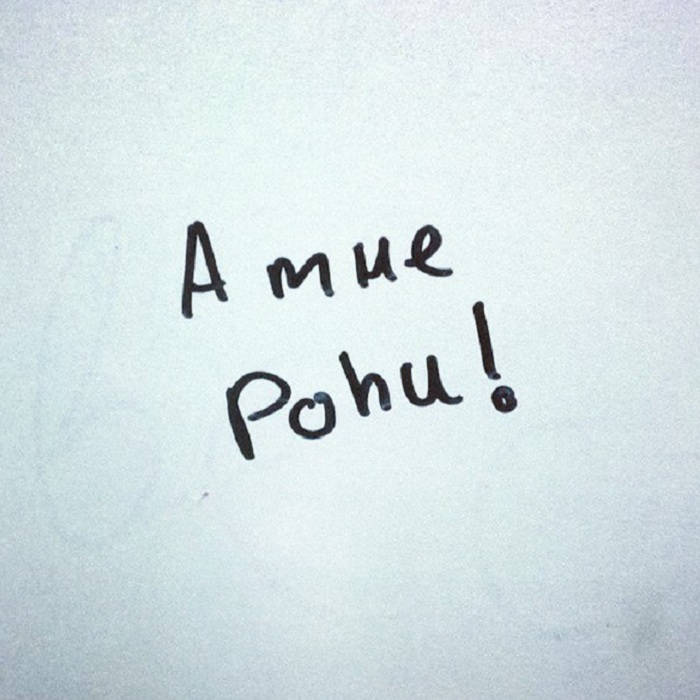 А мне
pohu!